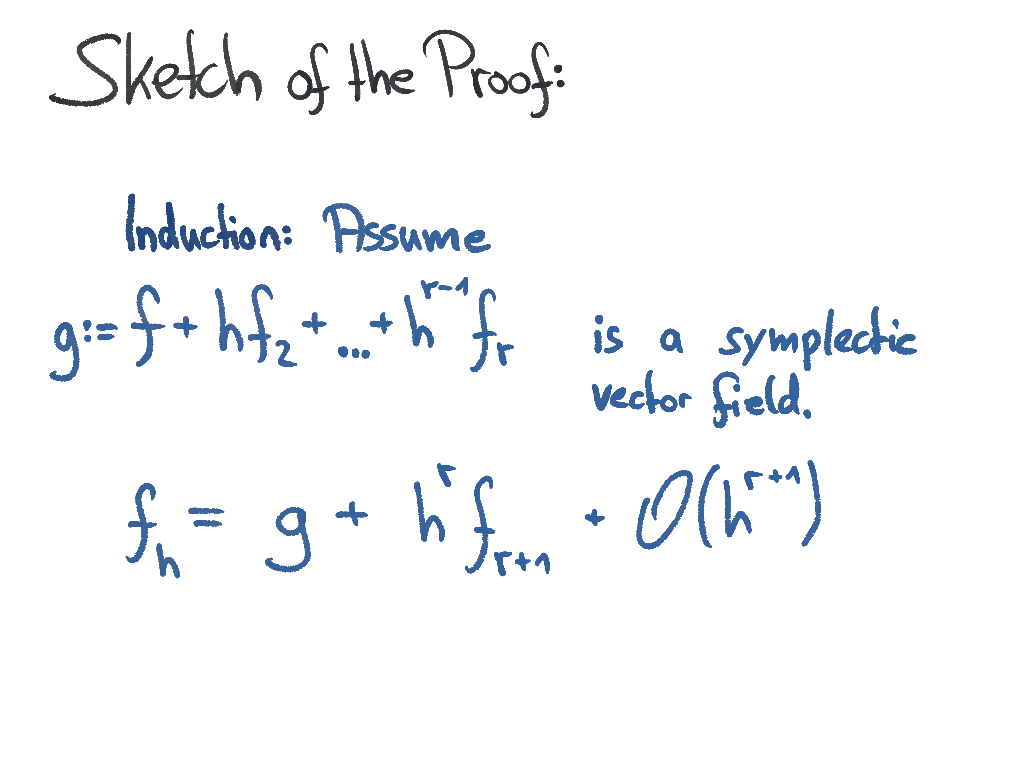 Sketch of the Proof:
Induction: Assume
g := f + hf₂ + ... + hʳ⁻¹ fᵣ is a symplectic
vector field.
f_h = g + hʳ f_{r+1} + O(h^{r+1})